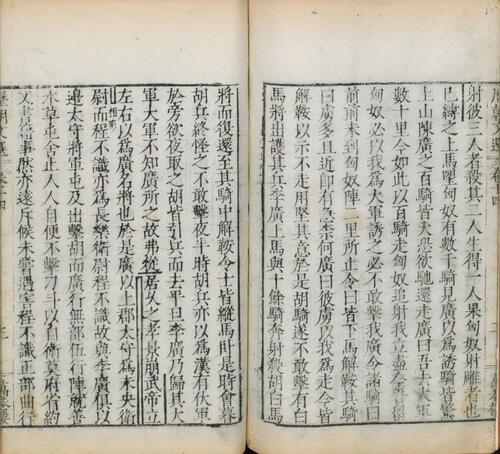 射彼三人者殺其二人生得一人果匈奴射雕者也
已縛之上馬望匈奴有數千騎見廣以為誘騎皆驚
上山陳廣之百騎皆大恐欲馳還走廣曰吾去大軍
數十里今如此以百騎走匈奴追射我立盡今我留
匈奴必以我為大軍誘之必不敢擊我廣令諸騎曰
前前未到匈奴陣二里所止令曰皆下馬解鞍其騎
曰虜多且近即有急柰何廣曰彼虜以我為走今皆
解鞍以示不走用堅其意於是胡騎遂不敢擊有白
馬將出護其兵李廣上馬與十餘騎奔射殺胡白馬
將而復還至其騎中解鞍令士皆縱馬臥是時會暮
胡兵終怪之不敢擊夜半時胡兵亦以為漢有伏軍
於旁欲夜取之胡皆引兵而去平旦李廣乃歸其大
軍大軍不知廣所之故弗從居久之孝景崩武帝立
左右以為廣名將也於是廣以上郡太守為未央衛
尉而程不識亦為長樂衛尉程不識故與李廣俱以
邊太守將軍屯及出擊胡而廣行無部伍行陣就善
水草屯舍止人人自便不擊刀斗以自衛莫府省約
文書籍事然亦遠斥候未嘗遇害程不識正部曲行